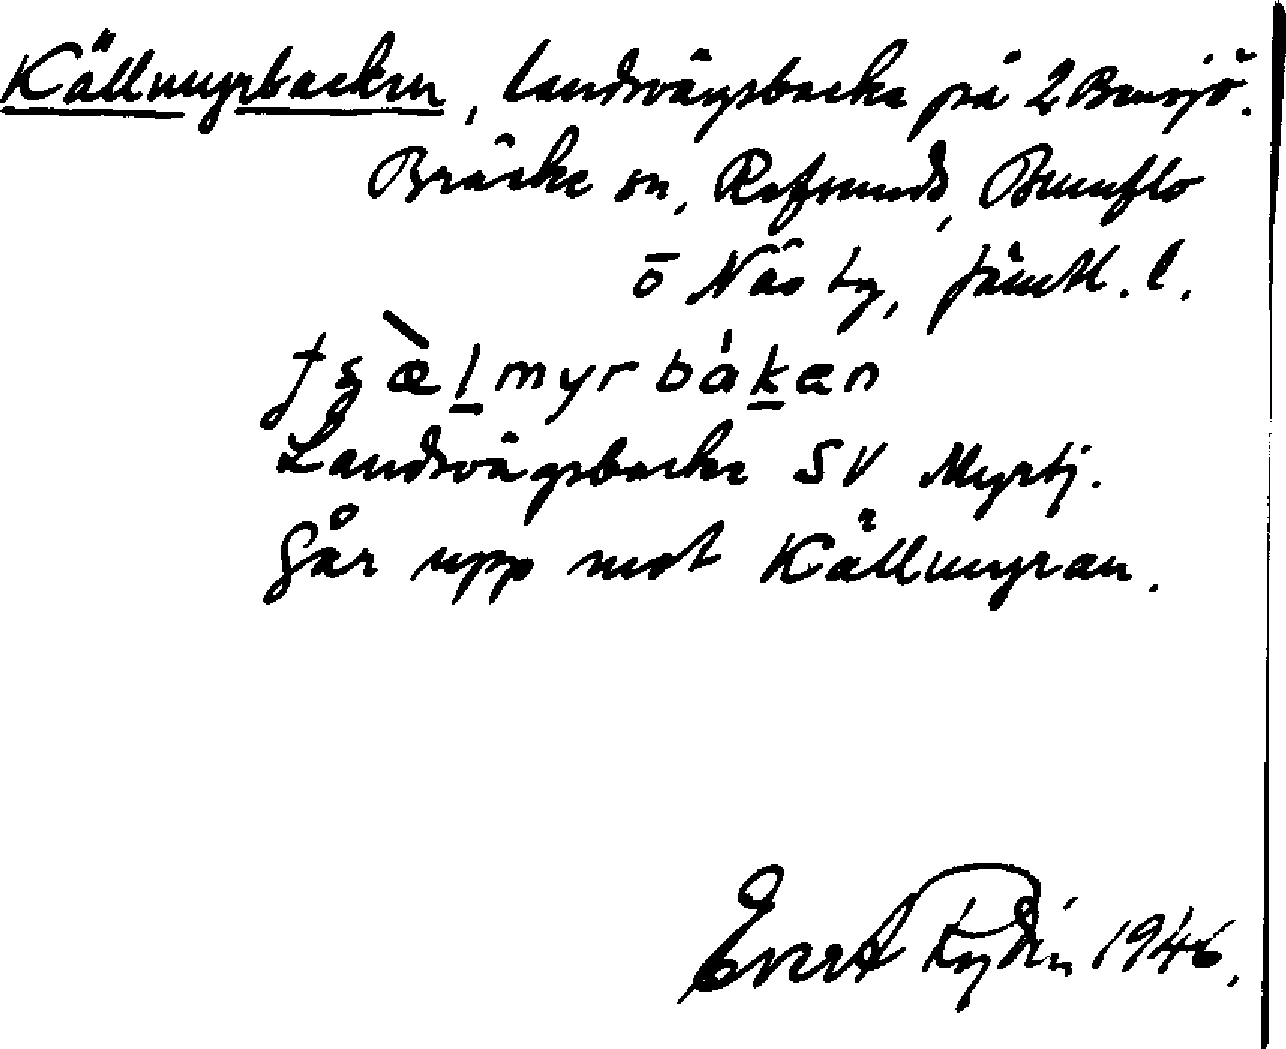 Källmyrbacken, landsvägsbacke på 2 Bensjö.
Bräcke sn, Refsunds, Brunflo
o Näs tg, Jämtl. l.
myrbákæn
Landsvägsbacke SV Myrtj.
Går upp mot Källmyran.
Evert 1946.